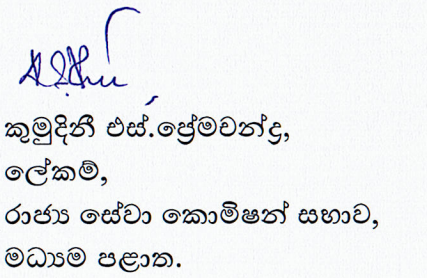 කුමුදිනී එස්.ප්‍රේමචන්ද්‍ර,
ලේකම්,
රාජ්‍ය සේවා කොමිෂන් සභාව,
මධ්‍යම පළාත.